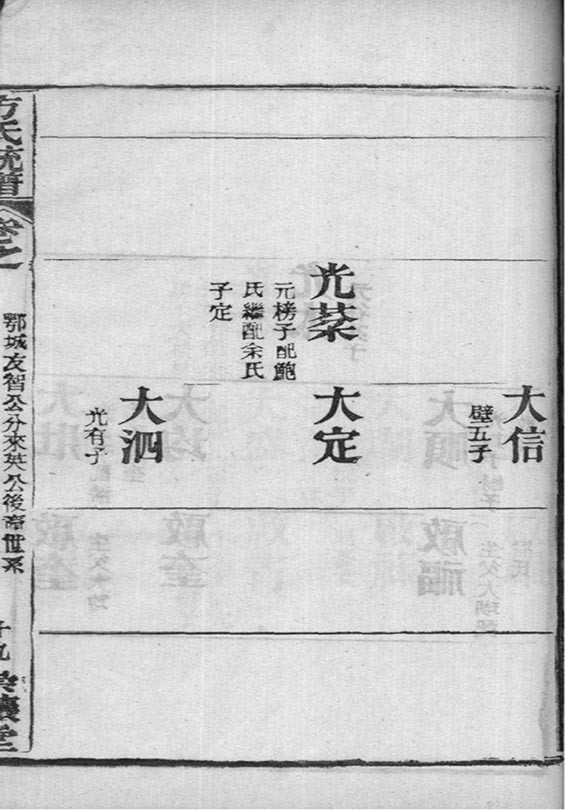 大信
璧五子
光棻
元榜子配鮑
氏繼配余氏
子定
大定
大泗
光有子
方氏統譜
卷之
鄂城友智公分來英公後裔世系